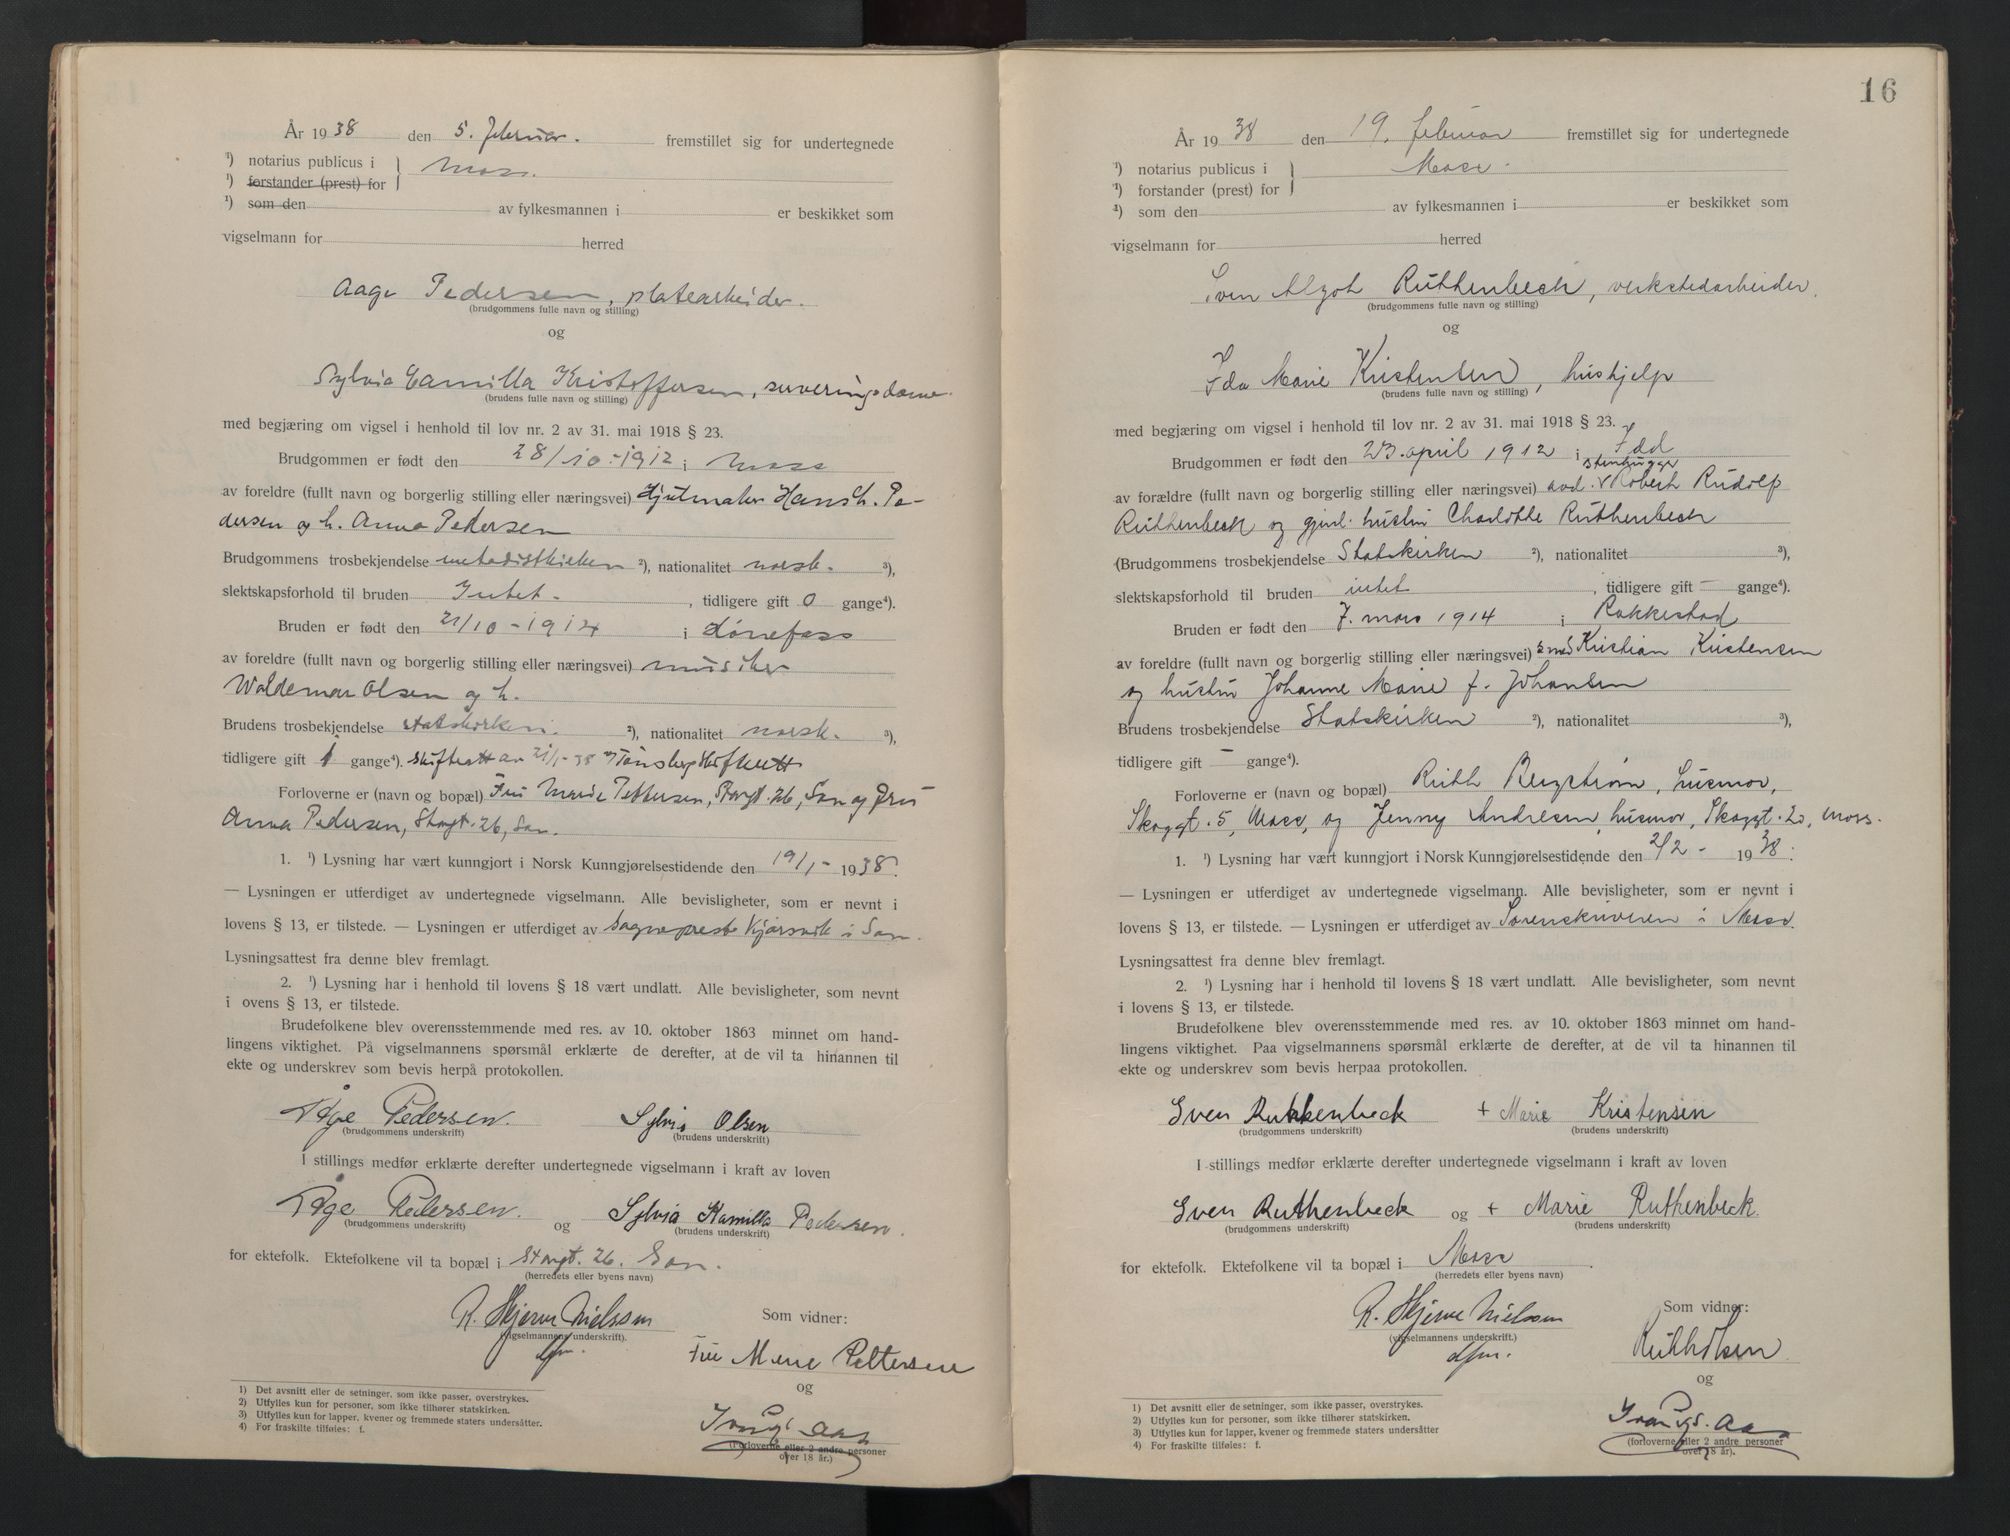 År 1938 den 5. februar. fremstillet sig for undertegnede
¹) notarius publicus i } Moss.
¹) forstander (prest) for
¹) som den av fylkesmannen i er beskikket som
vigselmann for herred
Aage Pedersen, platearbeider.
(brudgommens fulle navn og stilling)
og
Sylvia Camilla Kristoffersen, serveringsdame.
(brudens fulle navn og stilling)
med begjæring om vigsel i henhold til lov nr. 2 av 31. mai 1918 § 23.
Brudgommen er født den 28/10-1912 i Moss
av foreldre (fullt navn og borgerlig stilling eller næringsvei) Hjulmaker Hans H. Pe-
dersen og h. Anna Pedersen
Brudgommens trosbekjendelse metodistkirken ²), nationalitet norsk. ³),
slektskapsforhold til bruden Intet. , tidligere gift 0 gange⁴).
Bruden er født den 21/10-1914 i Hønefoss
av foreldre (fullt navn og borgerlig stilling eller næringsvei) musiker
Waldemar Olsen og h.
Brudens trosbekjendelse statskirken. ²), nationalitet norsk. ³),
tidligere gift 1 gange⁴). skifteatt av 21/1-38 Tønsberg skifterett
Forloverne er (navn og bopæl) Fru Marie Pettersen, Storgt. 26, Son og Fru
Anna Pedersen, Storgt. 26, Son.
1. ¹) Lysning har vært kunngjort i Norsk Kunngjørelsestidende den 19/1- 1938.
— Lysningen er utferdiget av undertegnede vigselmann. Alle bevisligheter, som er nevnt i
lovens § 13, er tilstede. — Lysningen er utferdiget av Sogneprest Kjørsvik i Son.
Lysningsattest fra denne blev fremlagt.
2. ¹) Lysning har i henhold til lovens § 18 vært undlatt. Alle bevisligheter, som nevnt
i ovens § 13, er tilstede.
Brudefolkene blev overensstemmende med res. av 10. oktober 1863 minnet om hand-
lingens viktighet. På vigselmannens spørsmål erklærte de derefter, at de vil ta hinannen til
ekte og underskrev som bevis herpå protokollen.
Åge Pedersen. Sylvia Olsen
(brudgommens underskrift) (brudens underskrift)
I stillings medfør erklærte derefter undertegnede vigselmann i kraft av loven
Åge Pedersen. og Sylvia Kamilla Pedersen.
(brudgommens underskrift) (brudens underskrift)
for ektefolk. Ektefolkene vil ta bopæl i Storgt. 26. Son.
(herredets eller byens navn)
R. Hjerve Nielssen Som vidner:
(vigselmannens underskrift).
Fru Marie Pettersen
og
Aas
(Forloverne eller 2 andre personer
over 18 år.)
1) Det avsnitt eller de setninger, som ikke passer, overstrykes.
2) Utfylles kun for personer, som ikke tilhører statskirken.
3) Utfylles kun for lapper, kvener og fremmede staters undersåtter.
4) For fraskilte tilføies: f.
16
År 1938 den 19. februar fremstillet sig for undertegnede
¹) notarius publicus i } Moss.
¹) forstander (prest) for
¹) som den av fylkesmannen i er beskikket som
vigselmann for herred
Sven Algot Ruthenbeck, verkstedarbeider.
(brudgommens fulle navn og stilling)
og
Ida Marie Kristensen, hushjelp
(brudens fulle navn og stilling)
med begjæring om vigsel i henhold til lov nr. 2 av 31. mai 1918 § 23.
Brudgommen er født den 23. april 1912 i Idd
stenhugger
av forældre (fullt navn og borgerlig stilling eller næringsvei) avd. Robert Rudolf
Ruthenbeck og gjenl. hustru Charlotte Ruthenbeck
(Brudgommens trosbekjendelse Statskirken ²), nationalitet ³),
slektskapsforhold til bruden intet , tidligere gift — gange⁴).
Bruden er født den 7. mars 1914 i Rakkestad
av foreldre (fullt navn og borgerlig stilling eller næringsvei) smed Kristian Kristensen
og hustru Johanne Marie f. Johansen
Brudens trosbekjendelse Statskirken ²), nationalitet ³),
tidligere gift — gange⁴).
Forloverne er (navn og bopæl) Ruth Bergstrøm, husmor,
Skoggt. 5, Moss, og Jenny Andresen, husmor, Skoggt. 20, Moss.
1. ¹) Lysning har vært kunngjort i Norsk Kunngjørelsestidende den 2/2- 1938.
— Lysningen er utferdiget av undertegnede vigselmann. Alle bevisligheter, som er nevnt i
lovens § 13, er tilstede. — Lysningen er utferdiget av Sorenskriveren i Moss.
Lysningsattest fra denne blev fremlagt.
2. ¹) Lysning har i henhold til lovens § 18 vært undlatt. Alle bevisligheter, som nevnt
i lovens § 13, er tilstede.
Brudefolkene blev overensstemmende med res. av 10. oktober 1863 minnet om hand-
lingens viktighet. Paa vigselmannens spørsmål erklærte de derefter, at de vil ta hinannen til
ekte og underskrev som bevis herpaa protokollen.
Sven Ruthenbeck + Marie Kristensen
(brudgommens underskrift) (brudens underskrift)
I stillings medfør erklærte derefter undertegnede vigselmann i kraft av loven
Sven Ruthenbeck og + Marie Ruthenbeck.
(brudgommens underskrift) (brudens underskrift)
for ektefolk. Ektefolkene vil ta bopæl i Moss.
(herredets eller byens navn)
R. Hjerve Nielssen Som vidner:
(vigselmannens underskrift.)
Ruth Olsen
og
Aas
(forloverne eller 2 andre personer
over 18 år).
1) Det avsnitt eller de setninger, som ikke passer, overstrykes.
2) Utfylles kun for personer, som ikke tilhører statskirken.
3) Utfylles kun for lapper, kvener og fremmede staters undersåtter
4) For fraskilte tilføies: f.